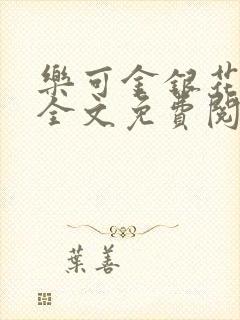 樂可金銀花
全文免費閱
葉善